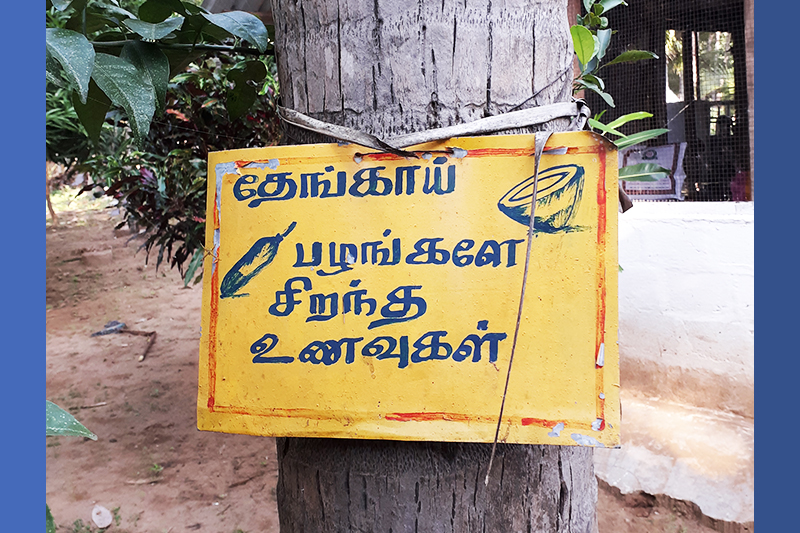 தேங்காய்
பழங்களே
சிறந்த
உணவுகள்